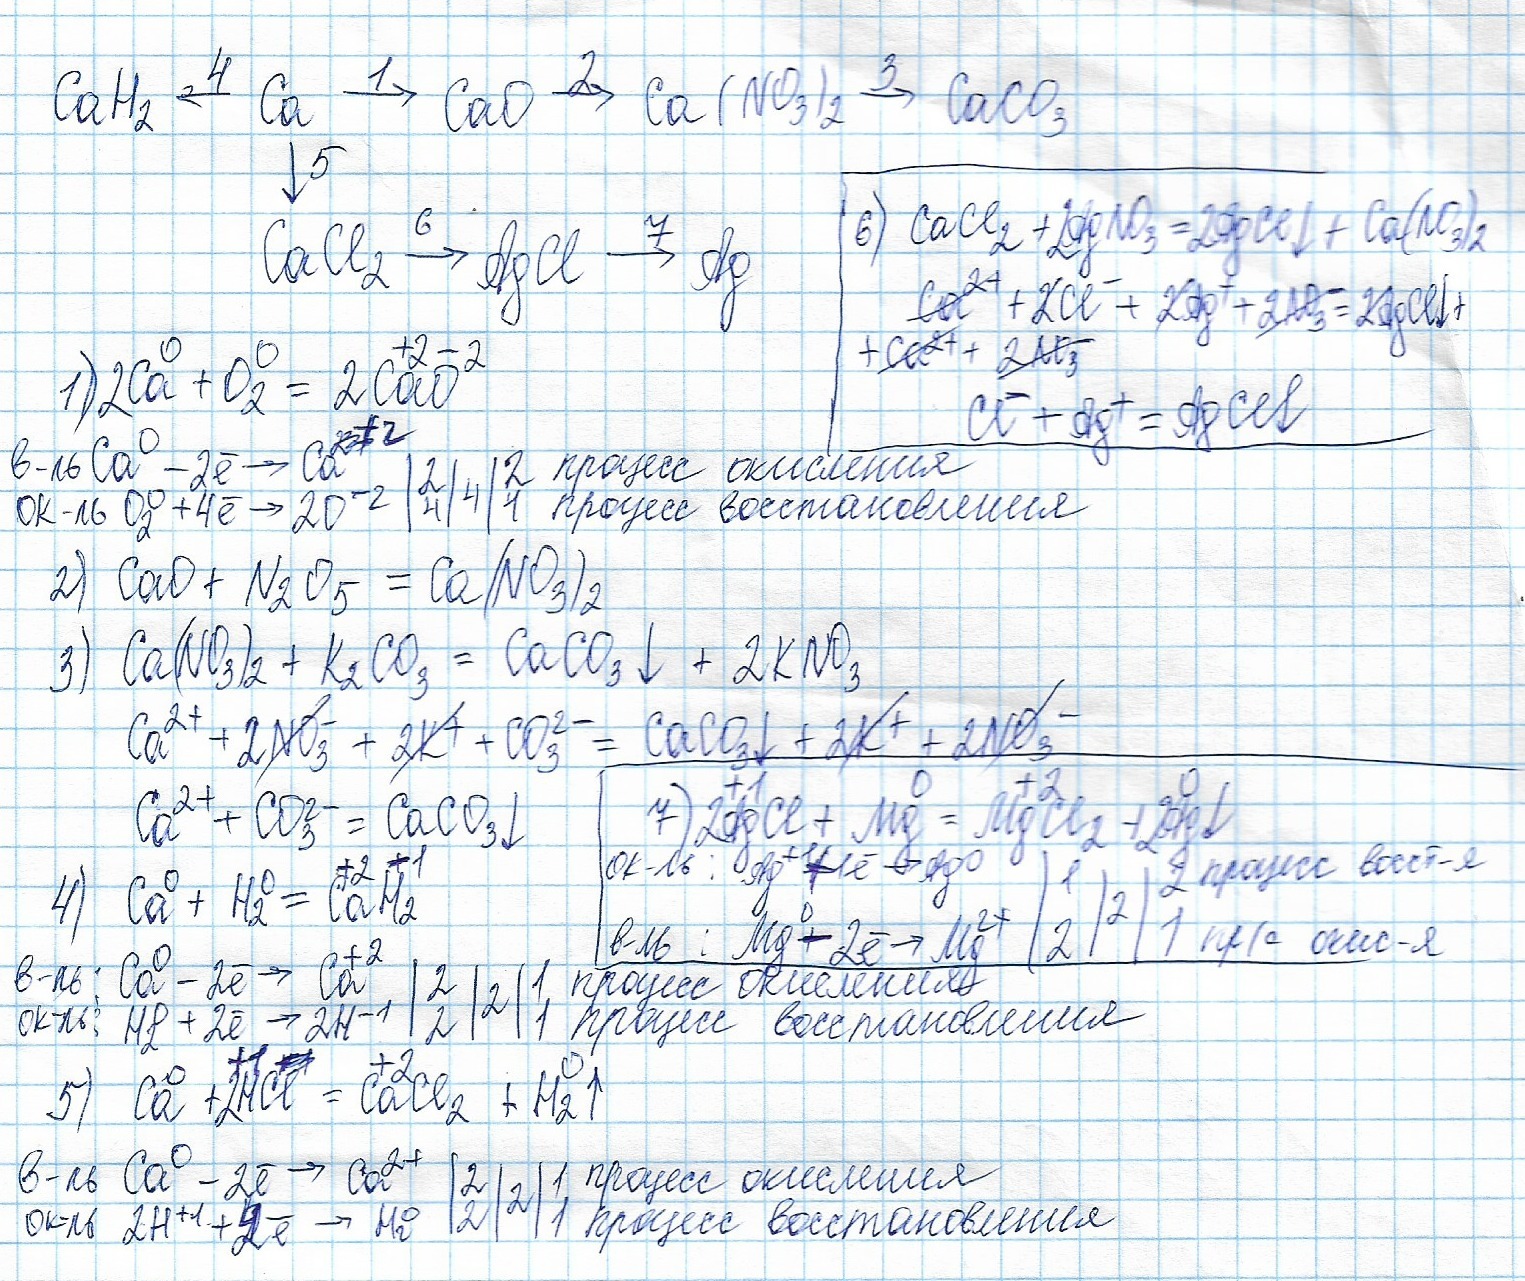 CaH₂ ←4 Ca 1→ CaO 2→ Ca(NO₃)₂ 3→ CaCO₃
↓5
CaCl₂ 6→ AgCl 7→ Ag
6) CaCl₂ + 2AgNO₃ = 2AgCl↓ + Ca(NO₃)₂
Ca²⁺ + 2Cl⁻ + 2Ag⁺ + 2NO₃⁻ = 2AgCl↓ +
+ Ca²⁺ + 2NO₃⁻
Cl⁻ + Ag⁺ = AgCl↓
1) 2Ca⁰ + O₂⁰ = 2Ca⁺²O⁻²
в-ль Ca⁰ - 2ē → Ca⁺² | 2 | 4 | 2 процесс окисления
ок-ль O₂⁰ + 4ē → 2O⁻² | 4 | | 1 процесс восстановления
2) CaO + N₂O₅ = Ca(NO₃)₂
3) Ca(NO₃)₂ + K₂CO₃ = CaCO₃↓ + 2KNO₃
Ca²⁺ + 2NO₃⁻ + 2K⁺ + CO₃²⁻ = CaCO₃↓ + 2K⁺ + 2NO₃⁻
Ca²⁺ + CO₃²⁻ = CaCO₃↓
7) 2Ag⁺¹Cl + Mg⁰ = Mg⁺²Cl₂ + 2Ag⁰↓
ок-ль: Ag⁺¹ + 1ē → Ag⁰ | 1 | 2 | 2 процесс восст-я
в-ль: Mg⁰ - 2ē → Mg²⁺ | 2 | | 1 пр/с окис-я
4) Ca⁰ + H₂⁰ = Ca⁺²H₂⁻¹
в-ль: Ca⁰ - 2ē → Ca⁺² | 2 | 2 | 1 процесс окисления
ок-ль: H₂⁰ + 2ē → 2H⁻¹ | 2 | | 1 процесс восстановления
5) Ca⁰ + 2H⁺¹Cl = Ca⁺²Cl₂ + H₂⁰↑
в-ль Ca⁰ - 2ē → Ca²⁺ | 2 | 2 | 1 процесс окисления
ок-ль 2H⁺¹ + 2ē → H₂⁰ | 2 | | 1 процесс восстановления